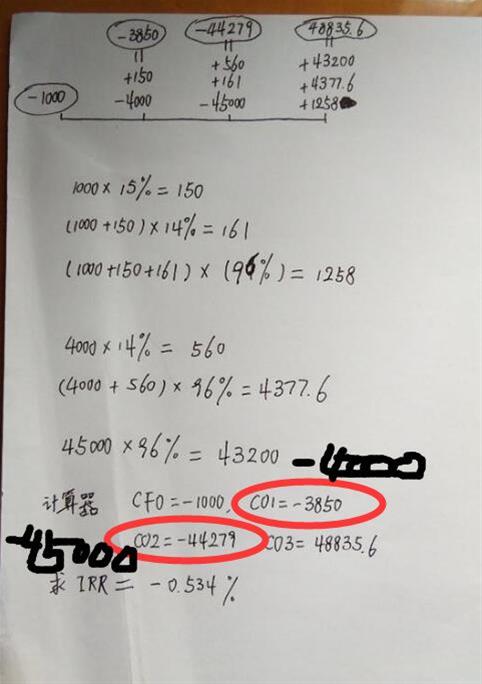 -3850 -44279 48835.6
|| || ||
+560 +43200
+150 +161 +4377.6
-1000 -4000 -45000 +1258
1000×15%=150
(1000+150)×14%=161
(1000+150+161)×(96%)=1258
4000×14%=560
(4000+560)×96%=4377.6
45000×96%=43200 -4000
计算器 CF0=-1000, C01=-3850
-45000 C02=-44279 C03=48835.6
求 IRR=-0.534%